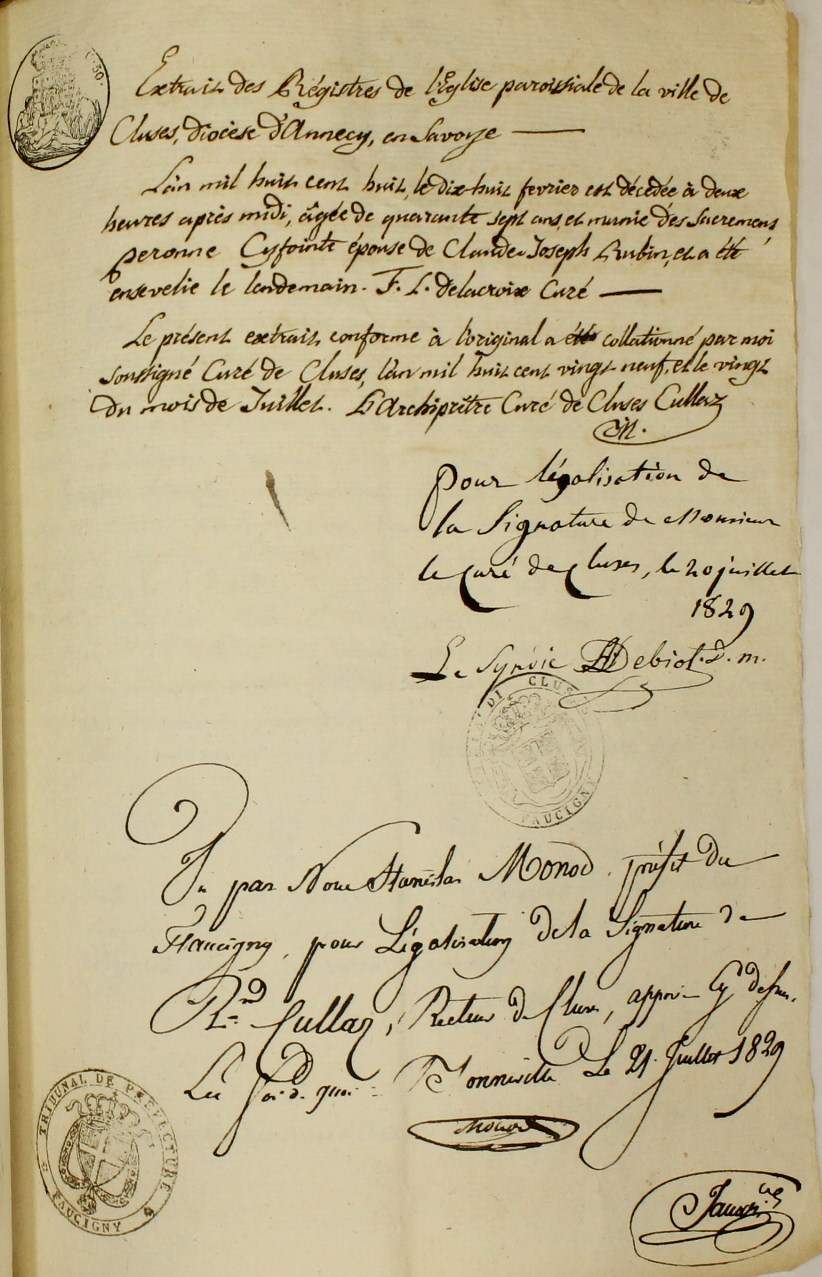 Extrait des Régistres de l'Eglise paroissiale de la ville de
Cluses, diocèse d'Annecy, en Savoye —
L'an mil huit cent huit, le dix-huit fevrier est décédée à deux
heures après midi, âgée de quarante sept ans, et munie des Sacremens
peronne épouse de Claude Joseph Rubin, et a été
ensevelie le lendemain. F. L. Delacroix Curé —
Le présent extrait conforme à l'original a été collationné par moi
soussigné Curé de Cluses, l'an mil huit cent vingt-neuf, et le vingt
du mois de Juillet. L'Archiprêtre Curé de Cluses Cullaz
Pour légalisation de
la Signature de Monsieur
le Curé de Cluses, le 20 juillet
1829
Le Syndic Debiot
DI CLUS
FAUCIGNY
Vu par Nous Stanislas Monod, préfet du
Faucigny, pour Légalisation de la Signature de
Rnd Cullaz, Recteur de Cluses, apposée
En foi de quoi Bonneville Le 21 Juillet 1829
Monod
TRIBUNAL DE PREFECTURE
FAUCIGNY